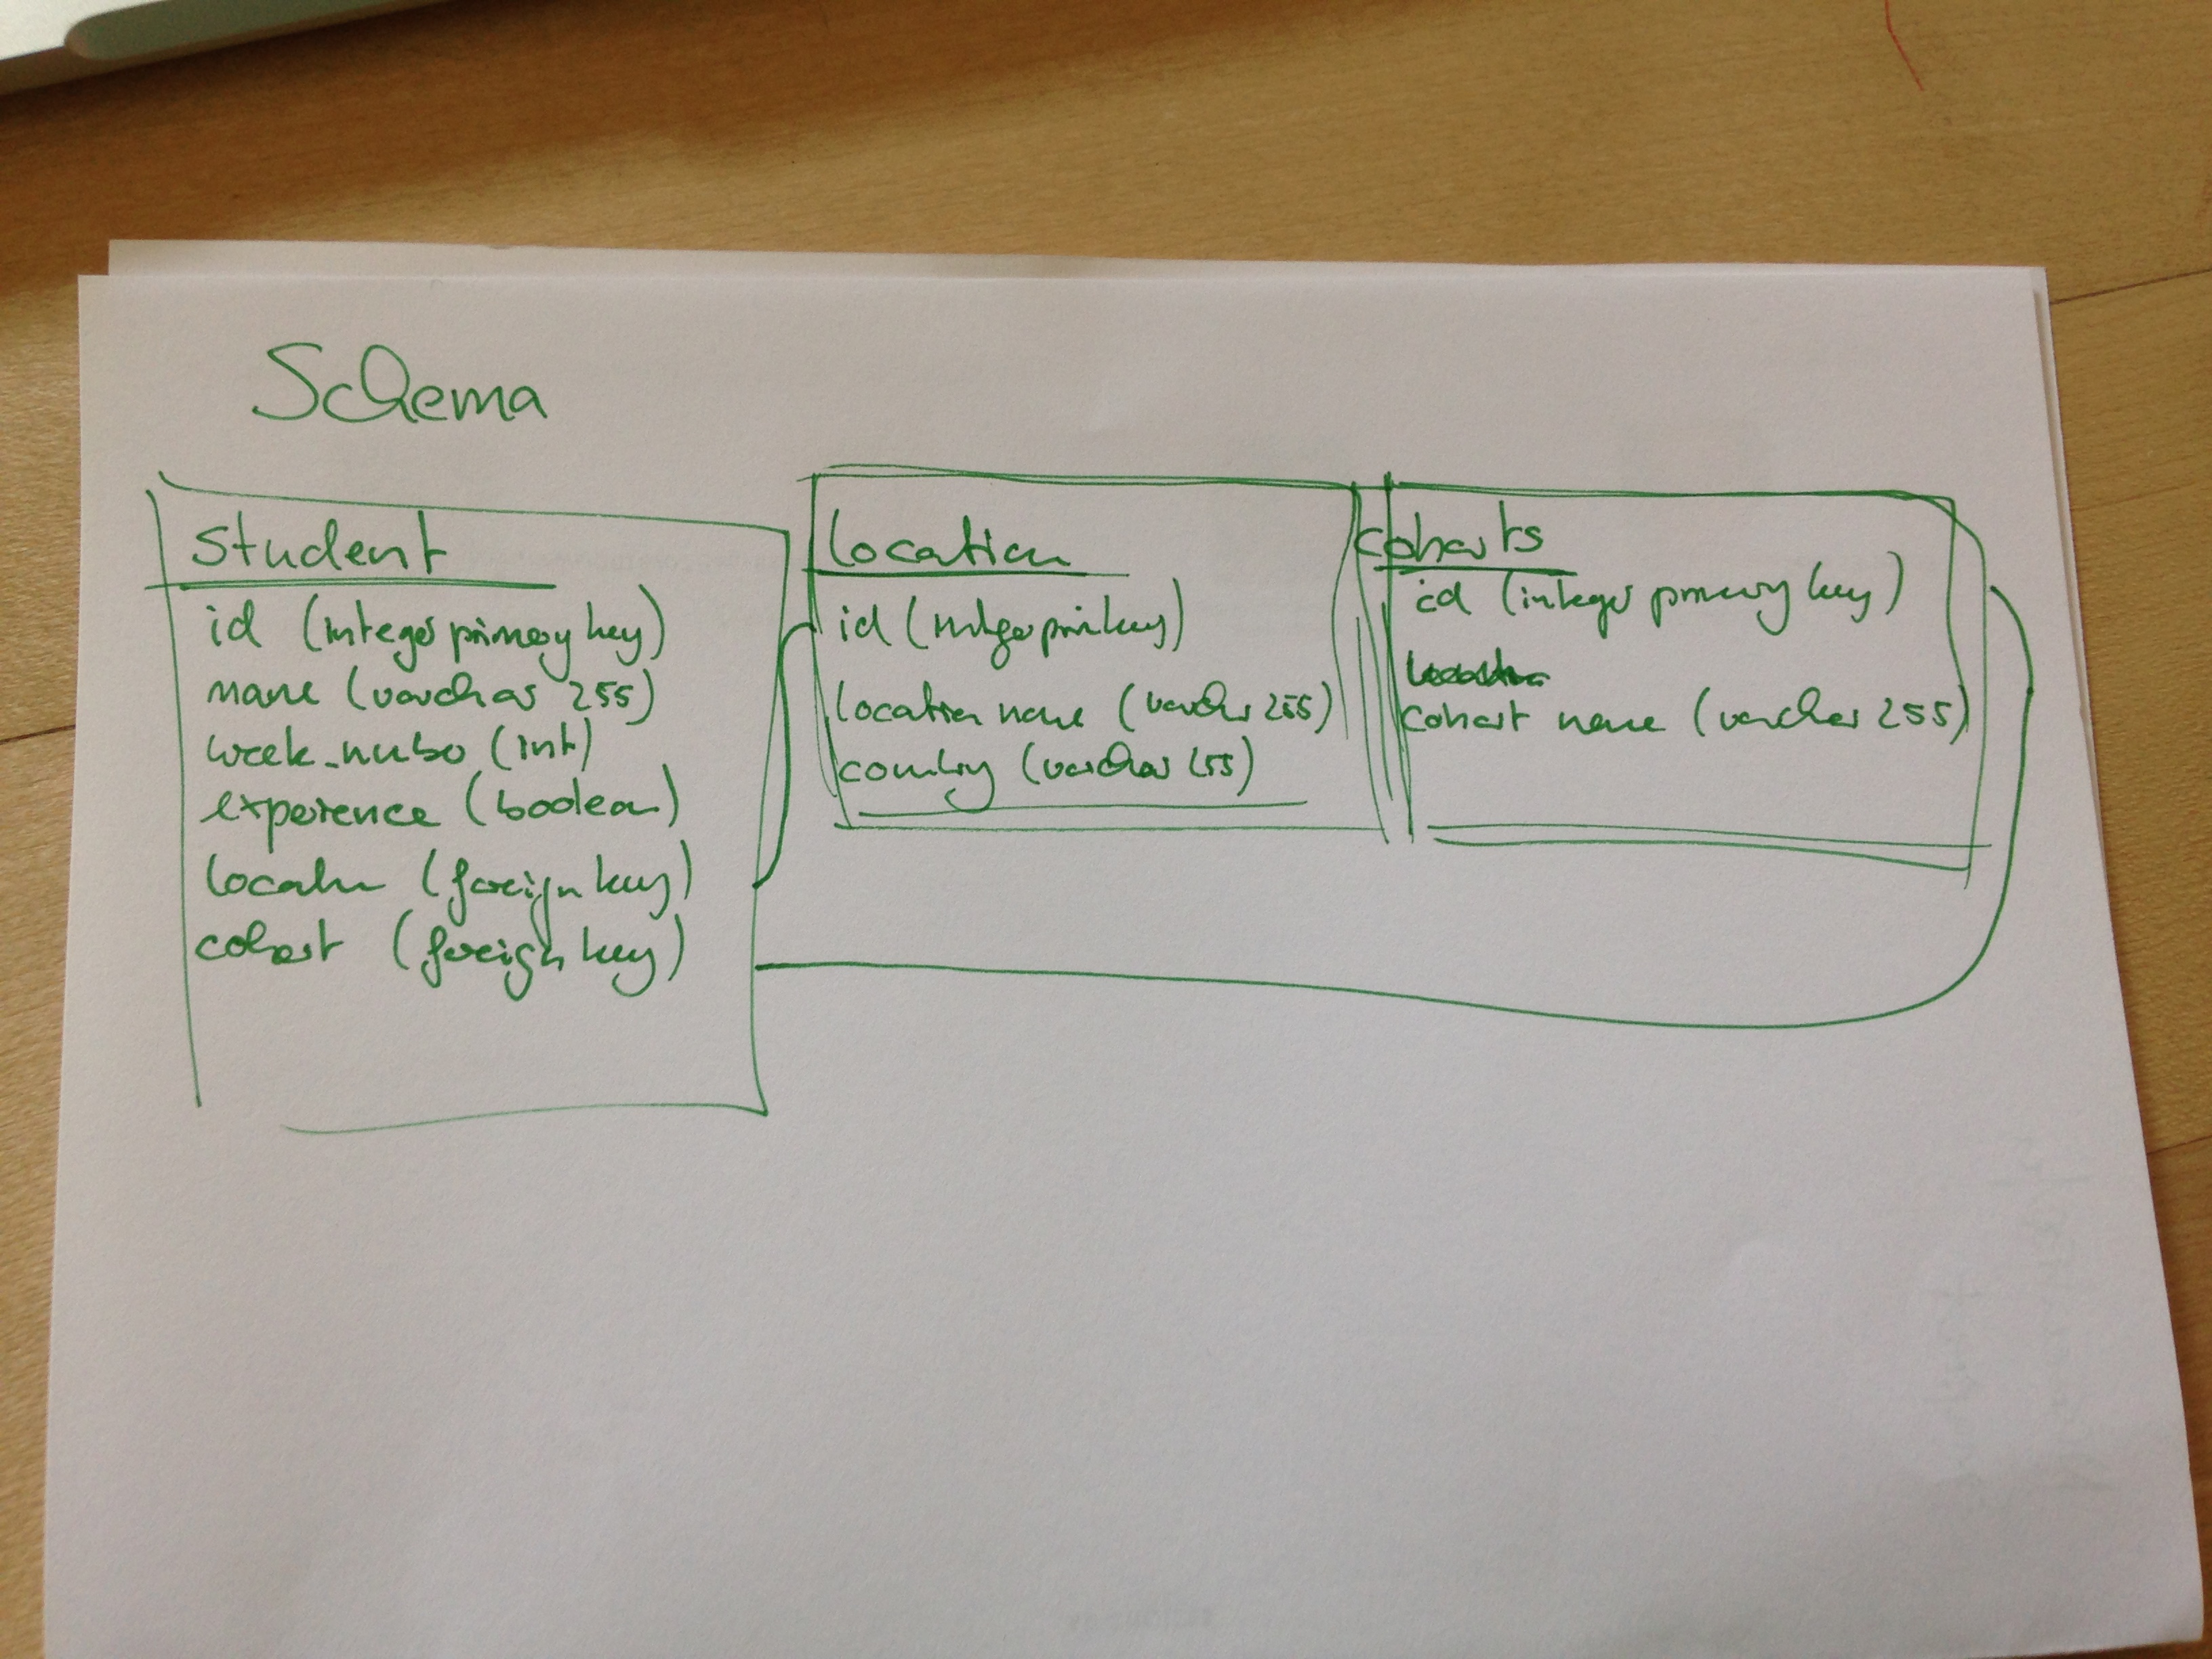 Schema
Student
id (integer primary key)
name (varchar 255)
week_number (int)
experience (boolean)
location (foreign key)
cohort (foreign key)
location
id (integer prim key)
location name (varchar 255)
country (varchar 255)
cohorts
id (integer primary key)
cohort name (varchar 255)